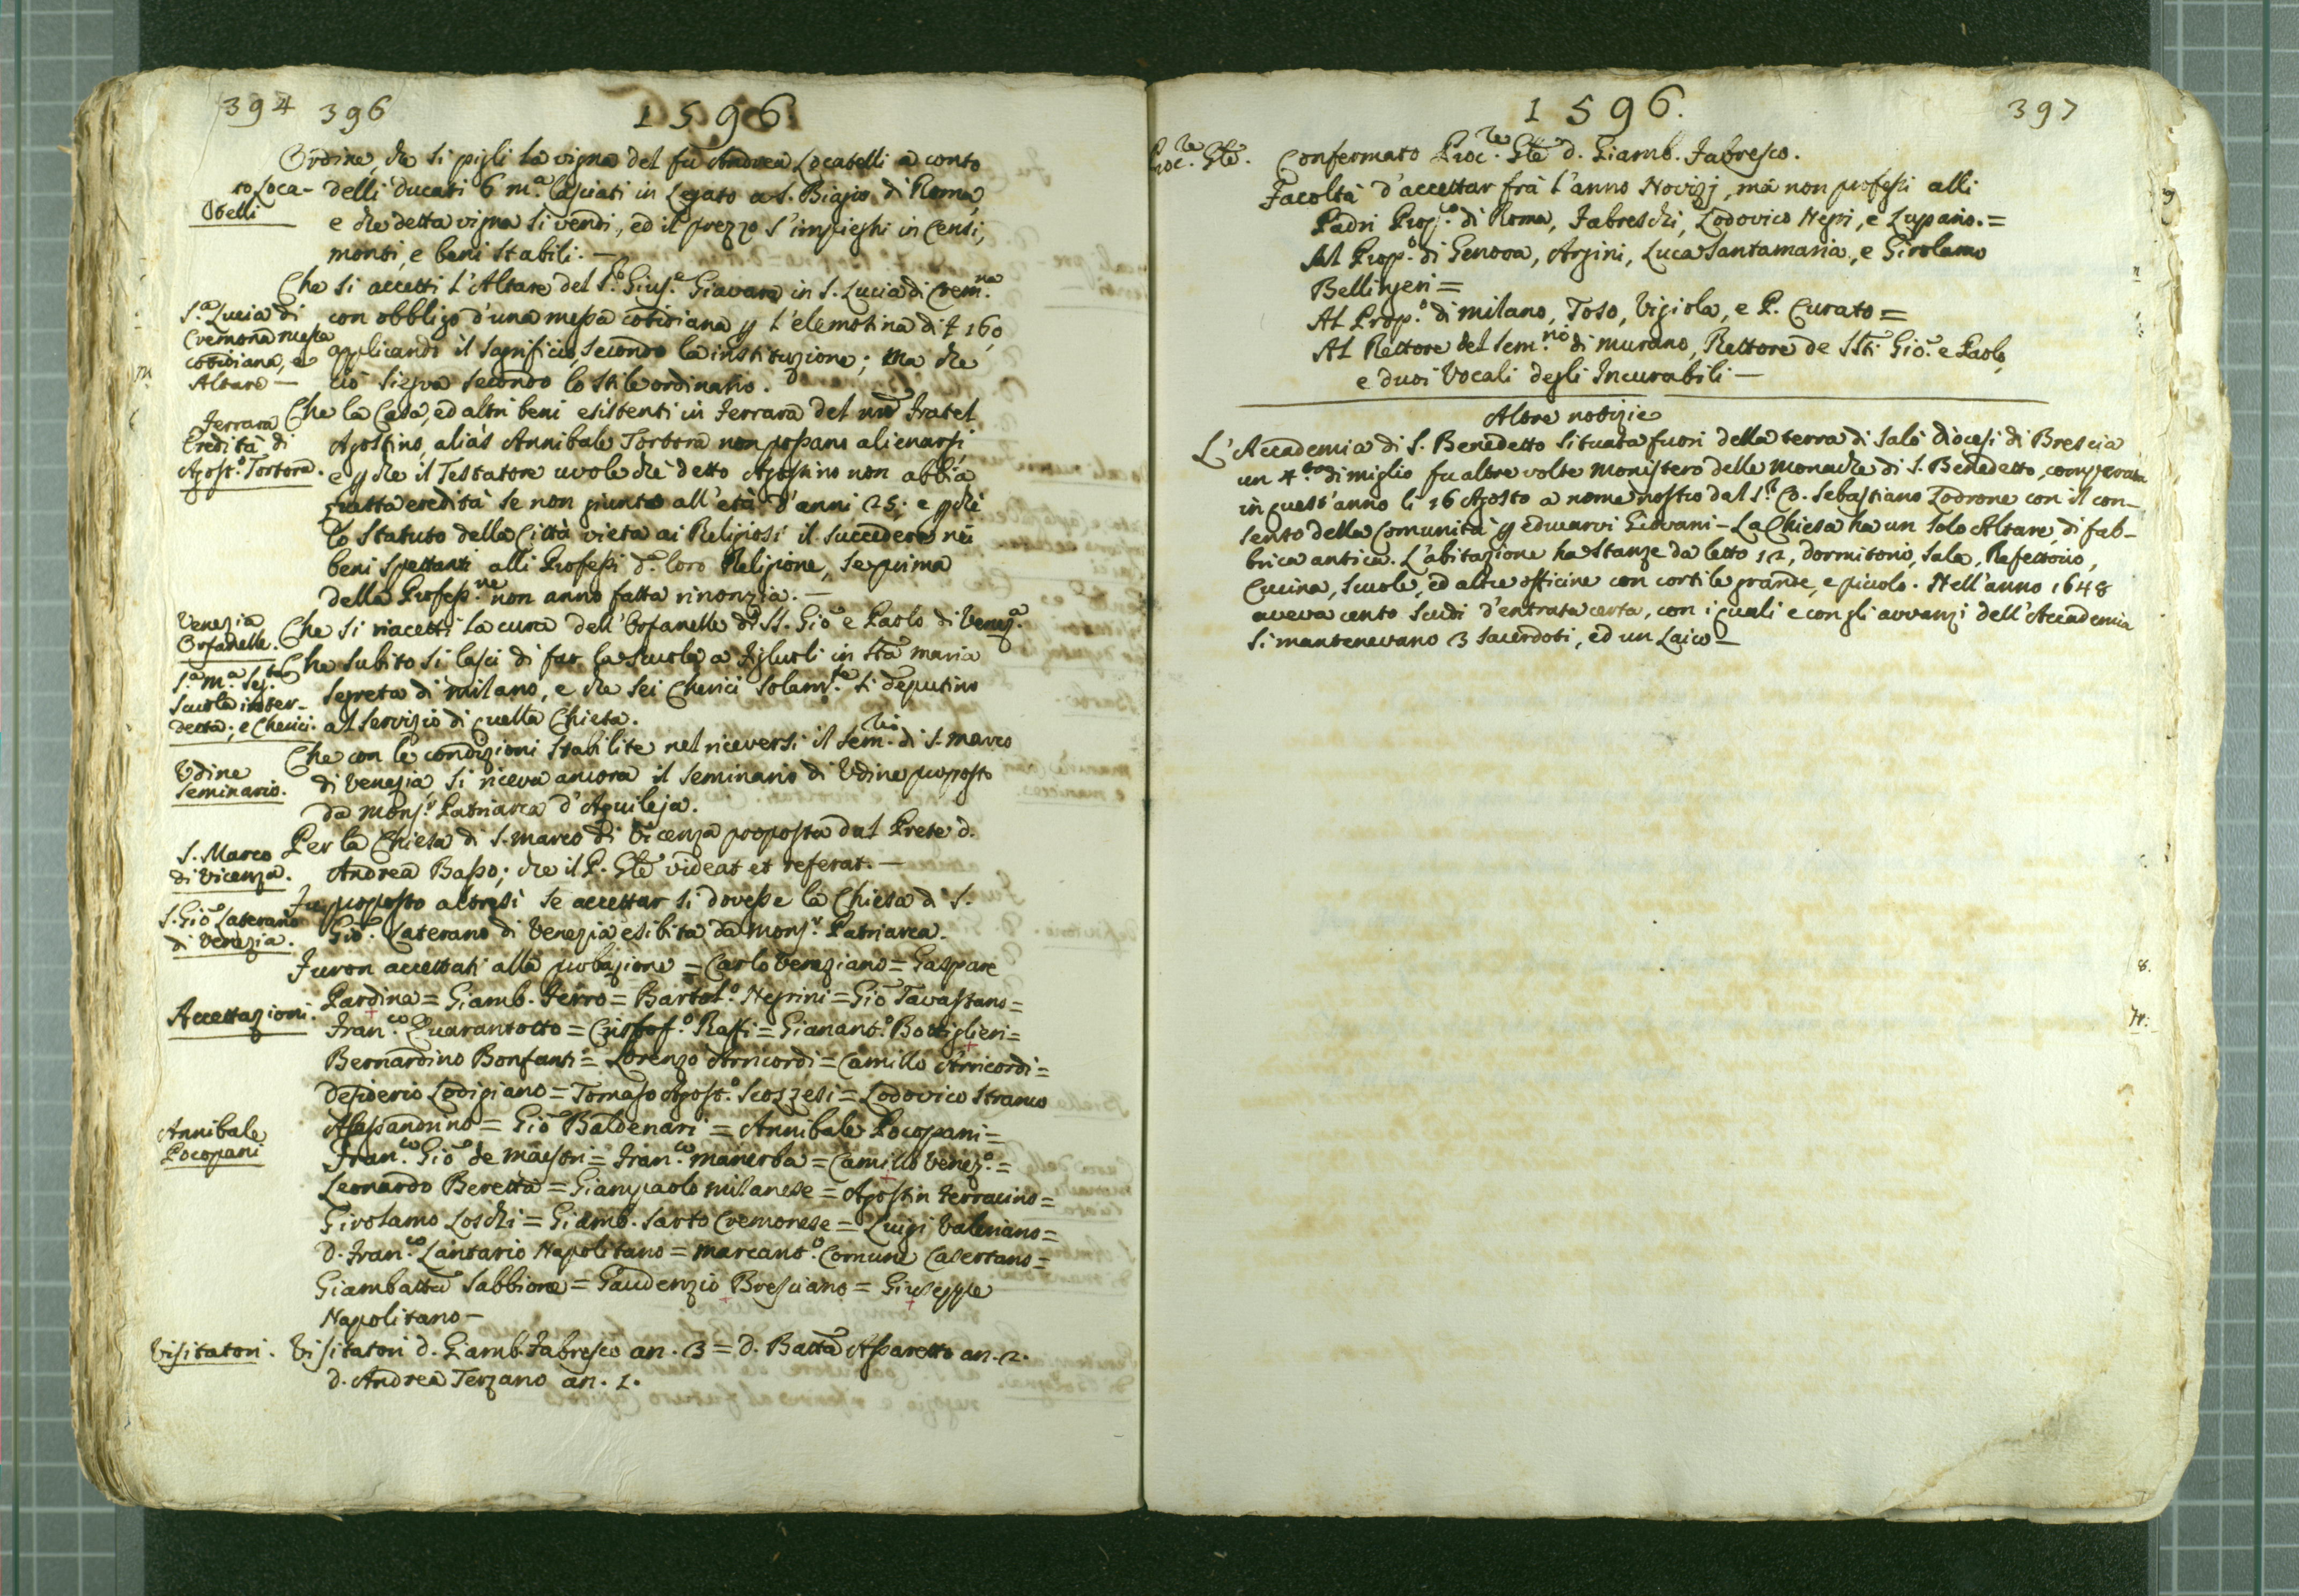 394 396 1596.
Ordine, che si pigli la vigna del fù Andrea Locatelli a conto
to Loca- delli ducati 6 m.a lasciati in Legato a S. Biagio di Roma,
telli e che detta vigna si vendi, ed il prezzo s'impieghi in Censi,
monti, e beni stabili. —
Che si accetti l'Altare del S.r Gius.e Giavara in S. Lucia di Crem.na
S.a Lucia di con obbligo d'una messa cotidiana p l'elemosina di £ 160,
Cremona messa applicando il sagrificio, secondo la instituzione; ma che
cotidiana, e
Altare — ciò siegua secondo lo stile ordinario.
Che la Casa, ed altri beni esistenti in Ferrara del nro Fratel
Ferrara
Eredità di Agostino, aliàs Annibale Tortora non possano alienarsi,
Agost.o Tortora. e p che il Testatore vuole che detto Agostino non abbia
quella eredità se non giunto all'età d'anni 25; e p chè
lo Statuto della Città vieta ai Religiosi il succedere nei
beni spettanti alli Professi d. loro Religione, se prima
della Profess.ne non anno fatta rinonzia. —
Venezia
Orfanelle. Che si riaccetti la cura dell'Orfanelle di SS. Gio e Paolo di Venez.a
Che subito si lasci di far la scuola a Figluoli in Sta Maria
S.a M.a Seg.ta
Scuola inter- segreta di milano, e che sei Cherici solam.te si deputino
detta; e Cherici. al servizio di quella Chiesa.
Che con le condizioni stabilite nel riceversi il Sem.rio di S. Marco
Udine
Seminario. di Venezia, si riceva ancora il Seminario di Udine proposto
da Mons.r Patriarca d'Aquileja.
S. Marco Per la Chiesa di S. Marco di Vicenza proposta dal Prete d.
di Vicenza. Andrea Basso; che il P. Gle videat et referat. —
Fu proposto altresì se accettar si dovesse la Chiesa di S.
S. Gio Laterano
di Venezia. Gio. Laterano di Venezia esibita da Mons.r Patriarca.
Furon accettati alla probazione = Carlo Veneziano = Gaspare
Accettazioni. Pardina = Giamb. Ferro = Bartol.o Negrini = Gio Tavastano =
Fran.co Quarantotto = Cristof.o Raffi = Gianant.o Bottiglieri =
Bernardino Bonfanti = Lorenzo Arricordi = Camillo Arricordi =
Desiderio Lodigiano = Tomaso Agost.o Scozzesi = Lodovico Stranio
Annibale Alessandrino = Gio Baldenari = Annibale Pocopani =
Pocopani Fran.co Gio de Maestri = Fran.co Manerba = Camillo Venez.o =
Leonardo Beretta = Giampaolo Milanese = Agostin Ferracino =
Girolamo Loschi = Giamb. Sarto Cremonese = Luigi Valeriano =
D. Fran.co Lantario Napolitano = Marcant.o Comune Casertano =
Giambatta Sabbione = Gaudenzio Bresciano = Giuseppe
Napolitano —
Visitatori. Visitatori d. Giamb. Fabresco an. 3 = d. Batta Assaretto an. 2.
d. Andrea Terzano an. 1.
1596. 397
Proc.re Gle. Confermato Proc.re Gle d. Giamb. Fabresco.
Facoltà d'accettar frà l'anno Novizj, mà non professi alli
Padri Prop.o di Roma, Fabreschi, Lodovico Negri, e Lupano. =
Al Prop.o di Genova, Argini, Luca Santamaria, e Girolamo
Bellingeri =
Al Prop.o di milano, Toso, Vigiola, e P. Curato =
Al Rettore del Sem.rio di murano, Rettore de SSti Gio. e Paolo,
e duoi Vocali degli Incurabili —
Altre notizie
L'Accademia di S. Benedetto situata fuori della terra di Salò diocesi di Brescia
un 4.to di miglio fu altre volte Monistero delle Monache di S. Benedetto, comperata
in quest'anno li 16 Agosto a nome nostro dal S.r C. Sebastiano Lodrone con il con-
senso della Comunità p educarvi Giovani — La Chiesa ha un solo Altare, di fab-
brica antica. L'abitazione ha stanze da letto 12, dormitorio, sala, Refettorio,
Cucina, scuole, ed altre officine con cortile grande, e picciolo. Nell'anno 1648
aveva cento scudi d'entrata certa, con i quali e con gli avvanzi dell'Accademia
si mantenevano 3 Sacerdoti, ed un Laico —